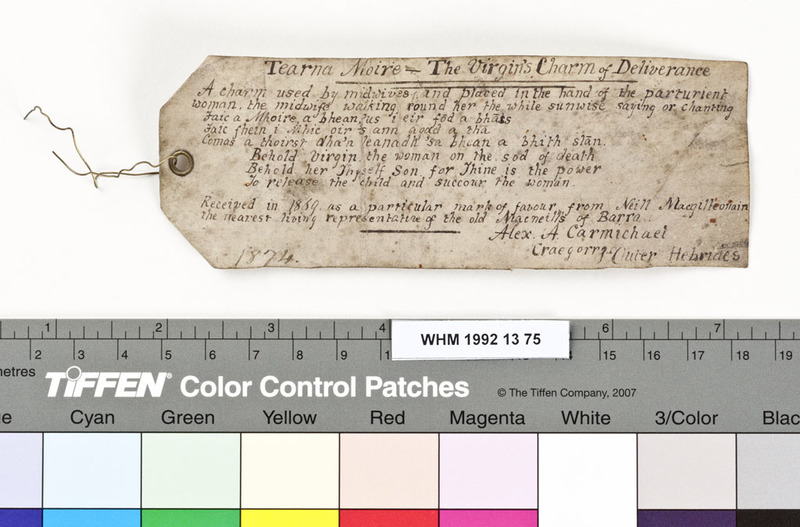 Tearna Moire – The Virgin's Charm of Deliverance
A charm used by midwives, and placed in the hand of the parturient
woman, the midwife walking round her the while sunwise saying or chanting
Faic a Mhoire a bhean, us i eir fod a bhais
Faic fhein i Mhic oir's ann agad a tha
Comas a thoirst dha'n leanadh 'sa bhean a bhith slàn.
Behold Virgin, the woman on the sod of death
Behold her Thyself Son, for Thine is the power
To release the child and succour the woman.
Received in 1869 as a particular mark of favour from Neill
the nearest living representative of the old Macneills of Barra.
Alex. A. Carmichael
Craegorry – Outer Hebrides
1874.
1 2 3 4 6 7
WHM 1992 13 75
metres 2 3 4 5 6 7 8 9 15 16 17 18 19
TIFFEN® Color Control Patches © The Tiffen Company, 2007
Cyan Green Yellow Red Magenta White 3/Color